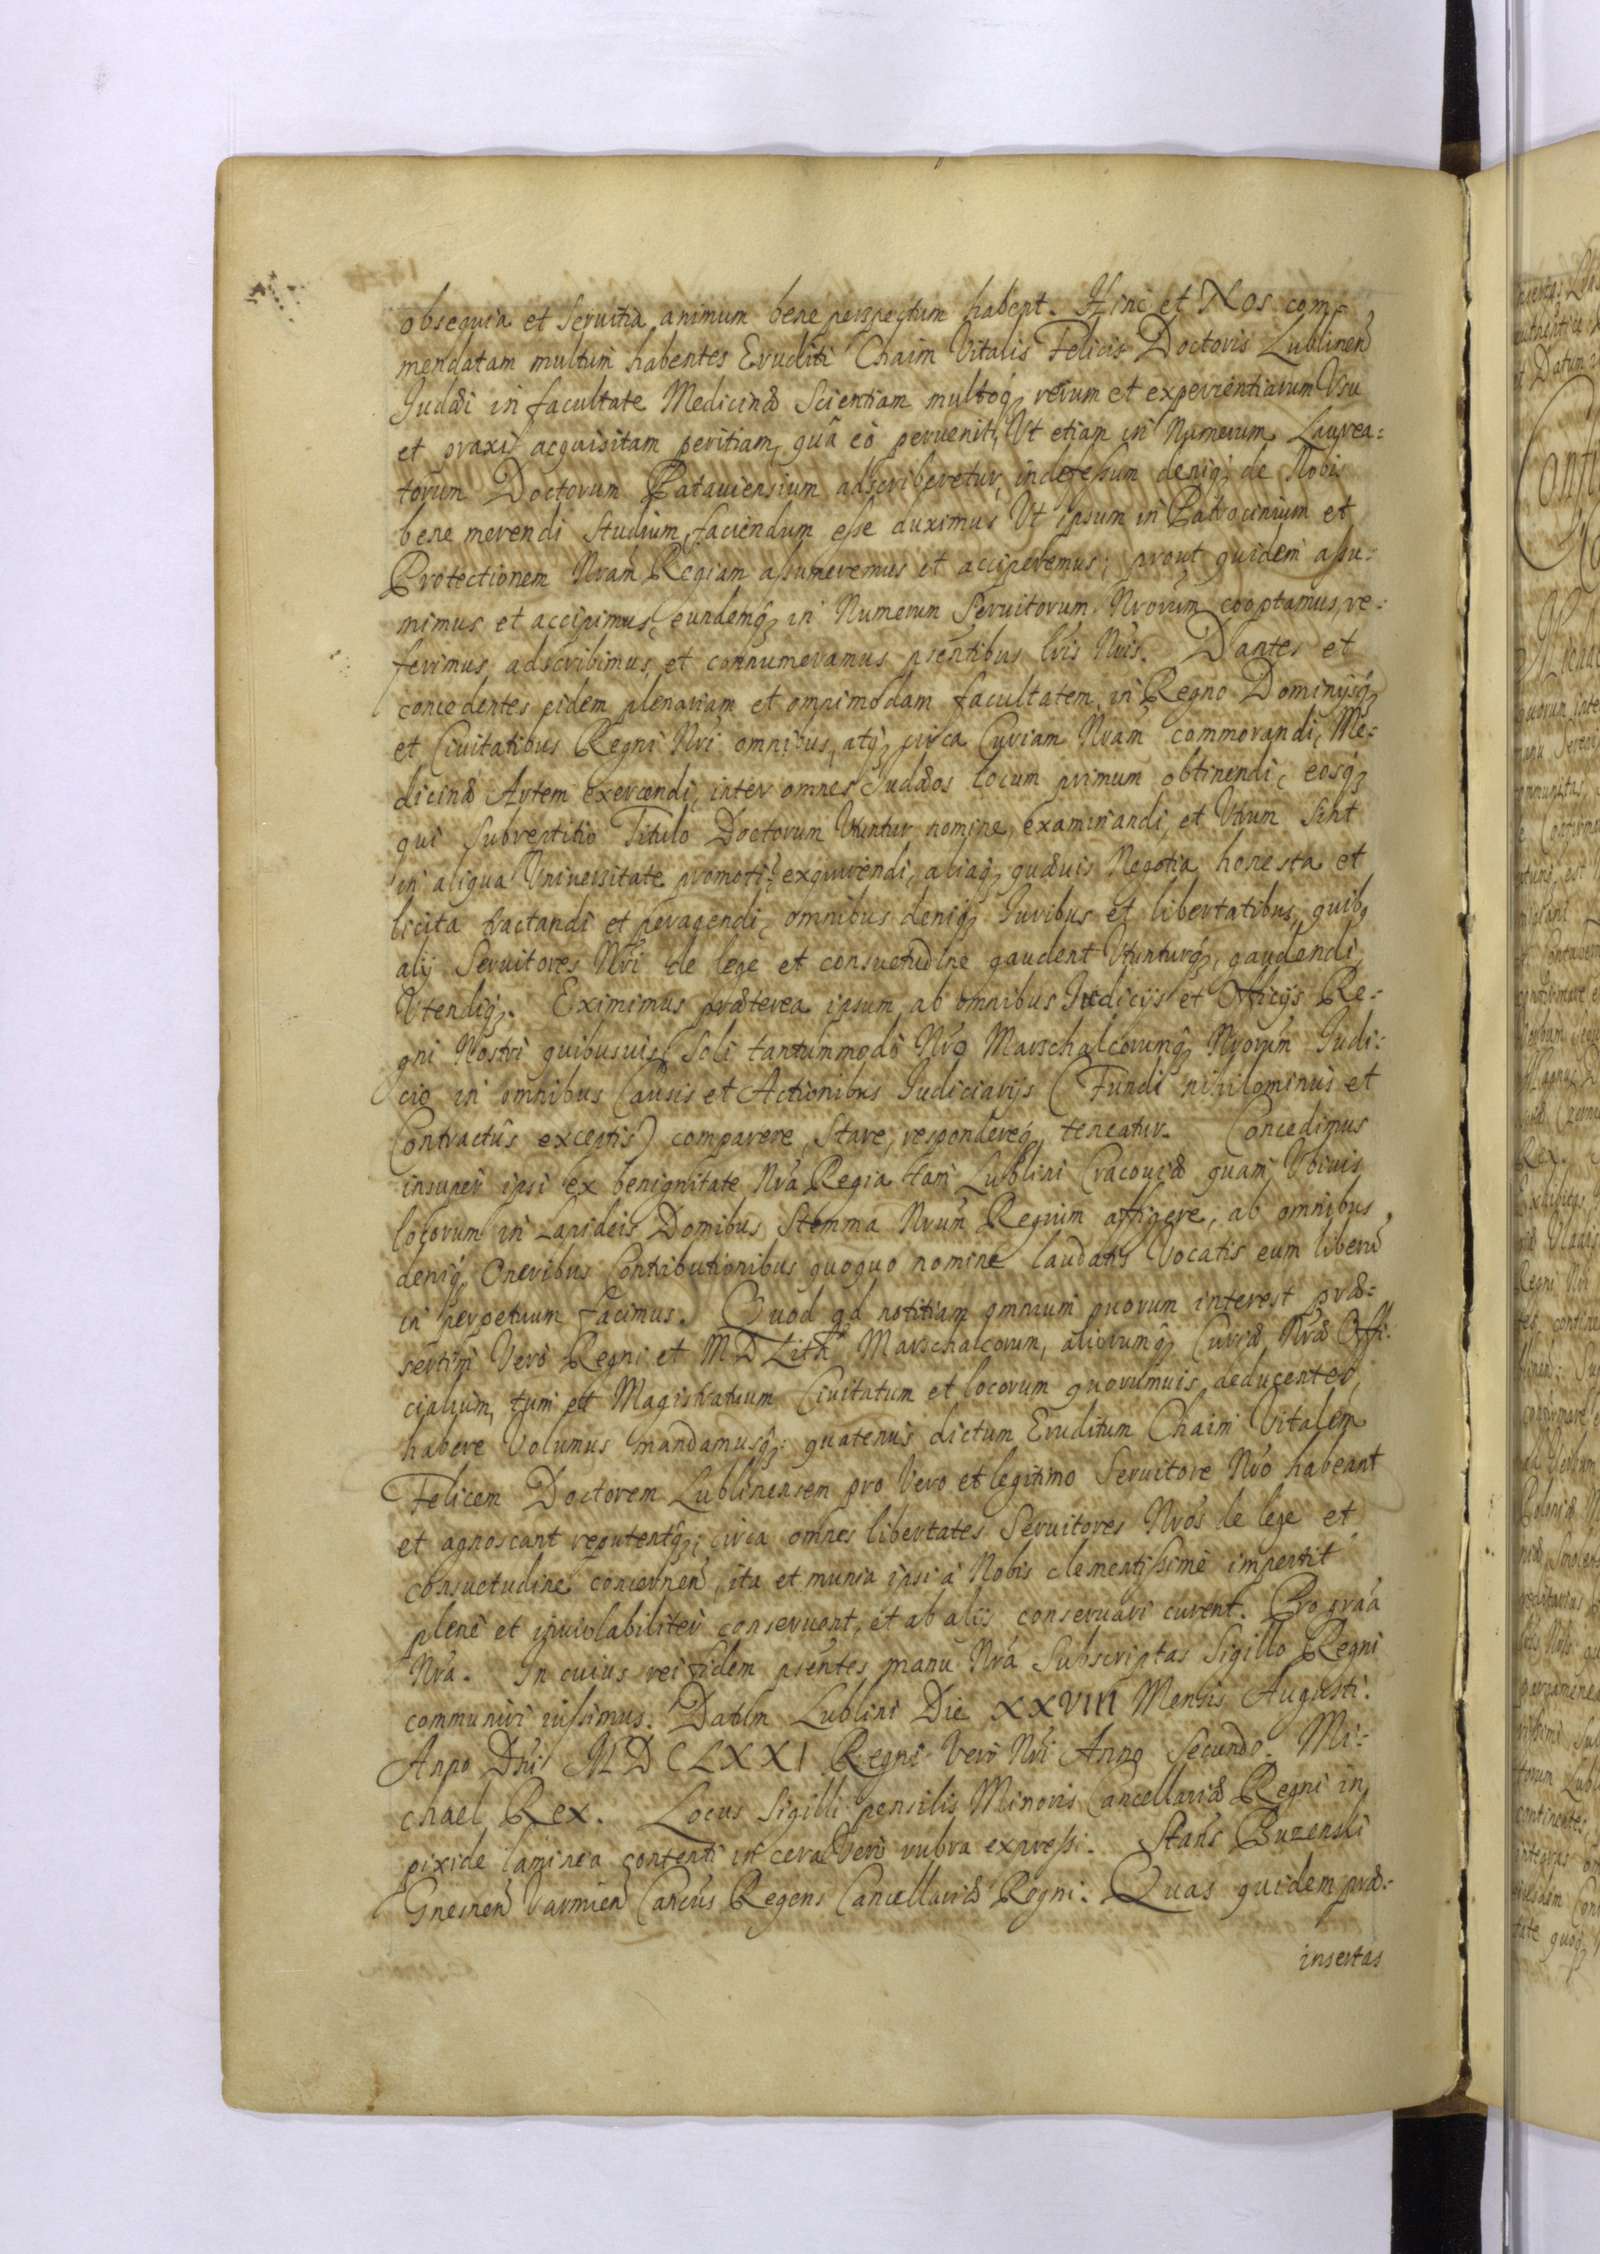 obsequia et Servitia animum bene perspectum habent. Hinc et Nos com=
mendatam multum habentes Eruditi Chaim Vitalis Felicis Doctoris Lublinen̄
Judæi in facultate Medicinæ Scientiam multoq́ȝ rerum et experientiarum Usu
et praxi acquisitam peritiam, quâ eò peruenit, Ut etiam in Numerum Laurea=
torum Doctorum Patauiensium adscriberetur, indefessum deniq́ȝ de Nobis
bene merendi Studium, faciendum esse duximus Ut ipsum in Patrocinium et
Protectionem Nrám Regiam assumeremus et acciperemus; prout quidem assu=
mimus et accipimus, eundemq́ȝ in Numerum Seruitorum Nrorúm cooptamus, re=
ferimus, adscribimus, et connumeramus pséntibus lrís Nrís. Dantes et
concedentes eidem plenariam et omnimodam facultatem, in Regno Dominijsq́ȝ
et Ciuitatibus Regni Nrí omnibus, atq́ȝ circa Curiam Nrám commorandi, Me=
dicinæ Artem exercendi, inter omnes Judæos locum primum obtinendi, eosq́ȝ
qui subreptitio Titulo Doctorum Utuntur nomine, examinandi, et Utrum Sint
in aliqua Uniuersitate promoti? exquirendi, aliaq́ȝ quæuis Negotia honesta et
licita tractandi et peragendi, omnibus deniq́ȝ Iuribus et libertatibus, quibȝ
alij Seruitores Nrí de lege et consuetudine gaudent Utunturq́ȝ, gaudendi,
Utendiq́ȝ. Eximimus præterea ipsum ab omnibus Iudicijs et Officijs Re=
gni Nostri quibusuis, Soli tantummodò Nró Marschalcorumq́ȝ Nrorúm Judi=
cio in omnibus Causis et Actionibus Judiciarijs (Fundi nihilominus et
Contractûs exceptis) comparere, Stare, respondereq́ȝ teneatur. Concedimus
insuper ipsi ex benignitate Nrá Regia tam Lublini Cracouiæ quam Ubiuis
locorum in Lapideis Domibus Stemma Nrúm Regium affigere, ab omnibus
deniq́ȝ Oneribus Contributionibus quoquo nomine laudatis Vocatis eum liberū
in perpetuum facimus. Quod ad notitiam omnium quorum interest præ=
sertim Verò Regni et M D Lith Marschalcorum, aliorumq́ȝ Curiæ Nræ Offi=
cialium, tum et Magistratuum Ciuitatum et locorum quorumuis deducentes,
habere Volumus mandamusq́ȝ: quatenus dictum Eruditum Chaim Vitalem
Felicem Doctorem Lublinensem pro Vero et legitimo Seruitore Nró habeant
et agnoscant reputentq́ȝ, circa omnes libertates Seruitores Nrós de lege et
consuetudine concernen̄, ita et munia ipsi à Nobis clementissimè impertit
plenè et inuiolabiliter conseruent, et ab alijs conseruari curent. Pro gráa
Nrá. In cuius rei fidem pséntes manu Nrá Subscriptas Sigillo Regni
communiri iussimus. Datum Lublini Die XXVIII Mensis Augusti.
Anno Dńi MDCLXXI Regni Verò Nrí Anno Secundo. Mi=
chael Rex. Locus Sigilli pensilis Minoris Cancellariæ Regni in
pixide laminea contenti in cera Verò rubra expressi. Stańs Buzenski
Gnesnen̄ Varmien̄ Cancús Regens Cancellariæ Regni. Quas quidem præ=
insertas